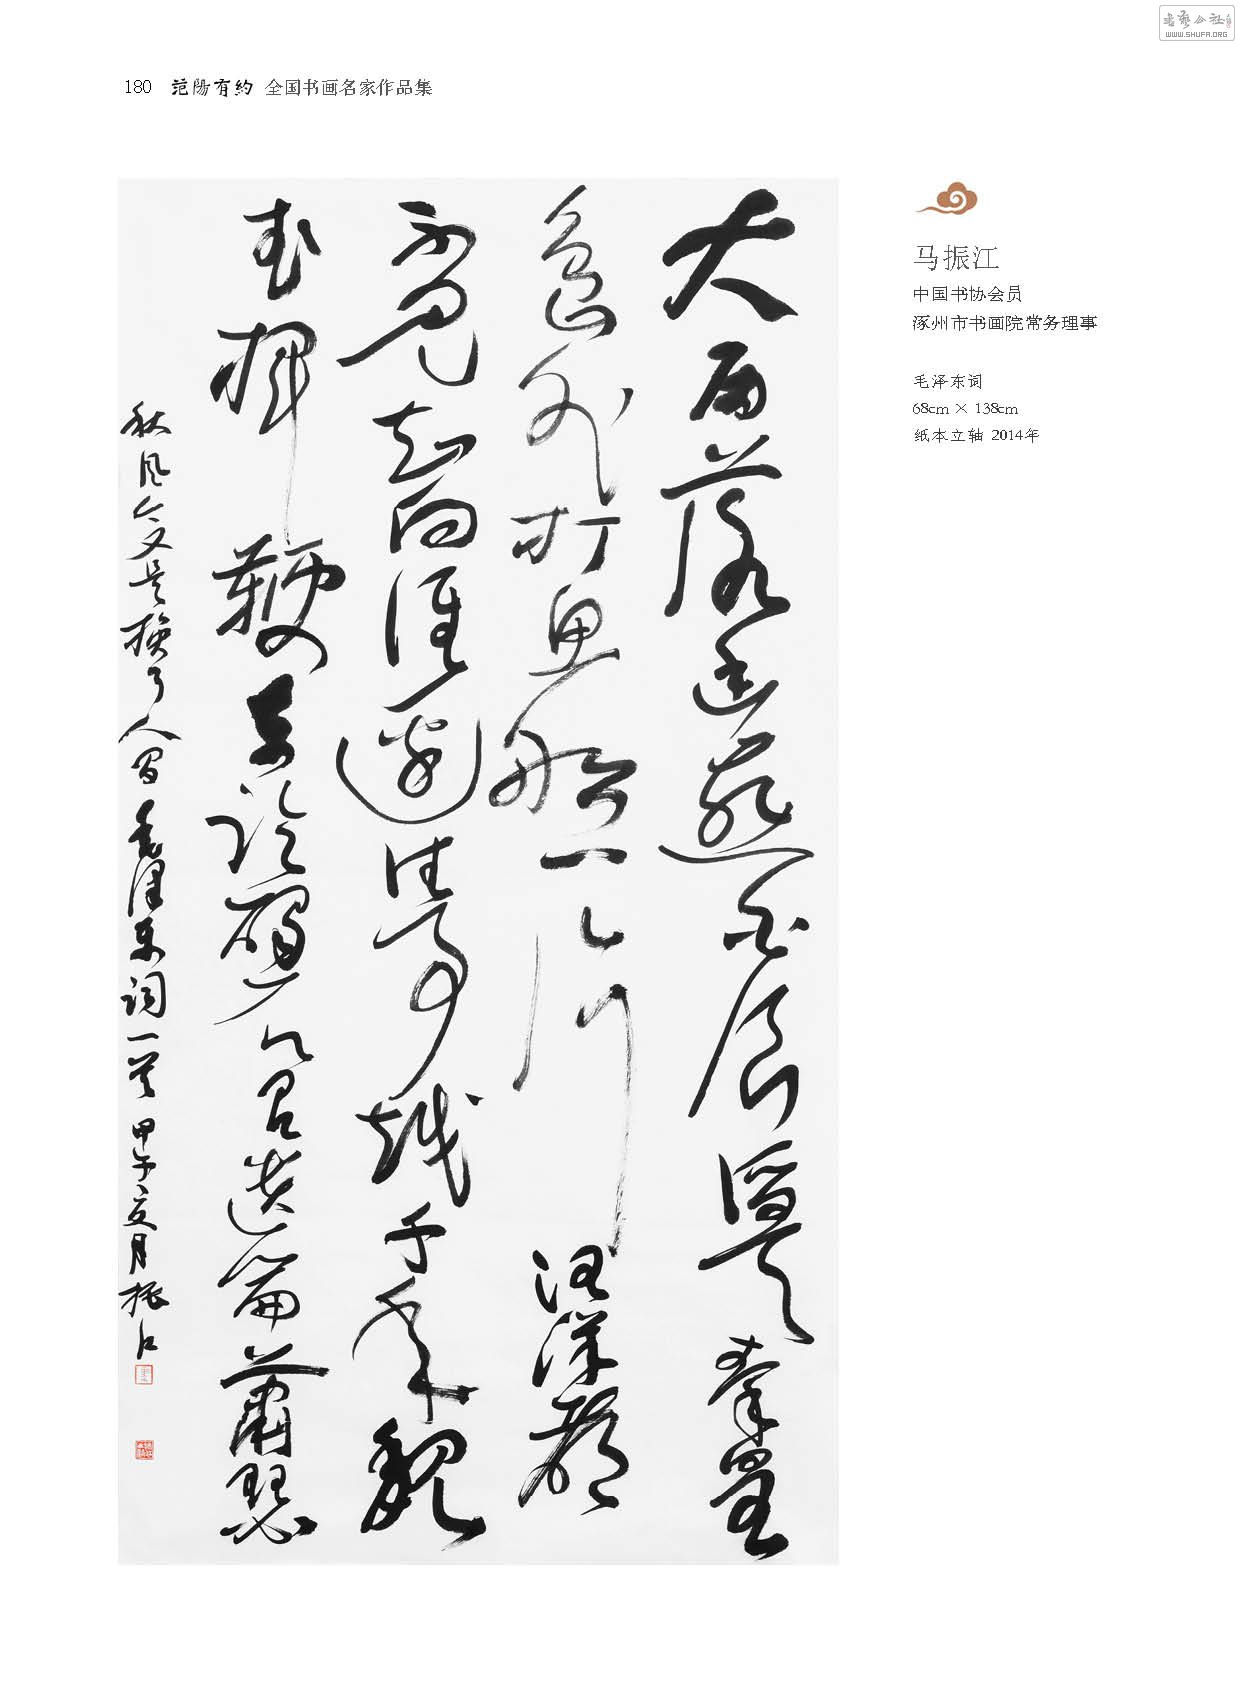 180 范陽有約 全国书画名家作品集
書藝公社
WWW.SHUFA.ORG
大雨落幽燕白浪滔天秦皇
島外打魚船一片汪洋都
不見知向誰邊往事越千年魏
武揮鞭東臨碣石有遺篇蕭瑟
秋風今又是換了人間 毛澤東詞一首 甲午夏月振江
马振江
中国书协会员
涿州市书画院常务理事
毛泽东词
68cm × 138cm
纸本立轴 2014年